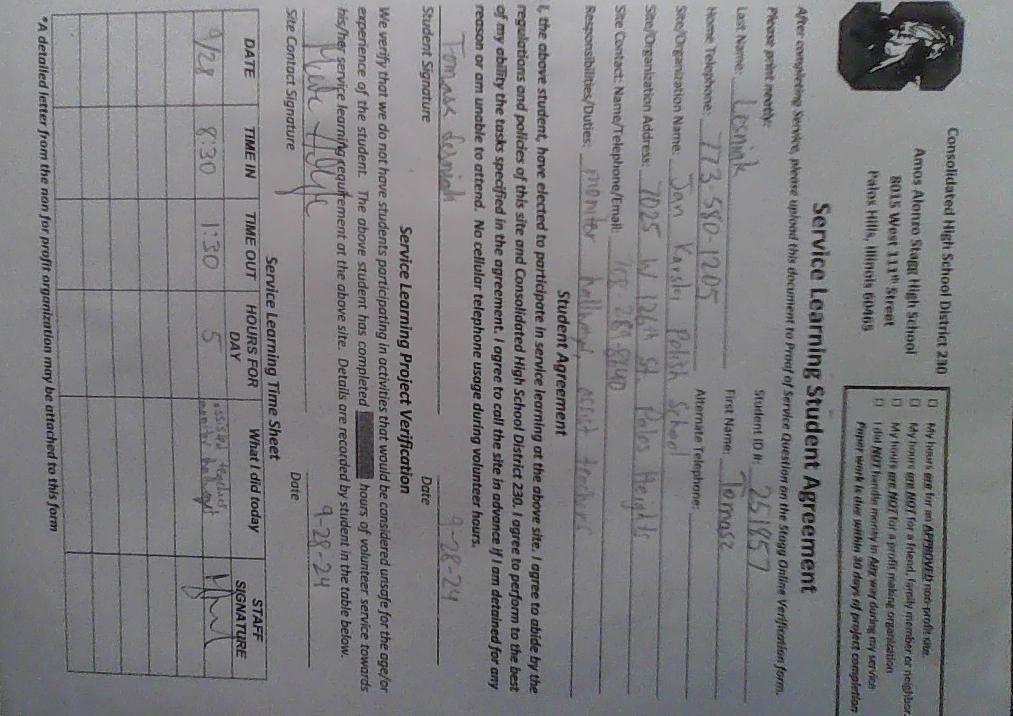 Consolidated High School District 230
Amos Alonzo Stagg High School
8015 West 111th Street
Palos Hills, Illinois 60465
☐ My hours are for an APPROVED non-profit site.
☐ My hours are NOT for a friend, family member or neighbor.
☐ My hours are NOT for a profit making organization
☐ I did NOT handle money in any way during my service
Paper work is due within 30 days of project completion
Service Learning Student Agreement
After completing Service, please upload this document to Proof of Service Question on the Stagg Online Verification form.
Please print neatly: Student ID #: 251857
Last Name: First Name: Tomasz
Home Telephone: 773-580-1205 Alternate Telephone:
Site/Organization Name: Jan Karski Polish School
Site/Organization Address: 7025 W 126th St. Palos Heights
Site Contact: Name/Telephone/Email: 708-289-8140
Responsibilities/Duties: moniter hallways, assist teachers
Student Agreement
I, the above student, have elected to participate in service learning at the above site. I agree to abide by the
regulations and policies of this site and Consolidated High School District 230. I agree to perform to the best
of my ability the tasks specified in the agreement. I agree to call the site in advance if I am detained for any
reason or am unable to attend. No cellular telephone usage during volunteer hours.
9-28-24
Student Signature Date
Service Learning Project Verification
We verify that we do not have students participating in activities that would be considered unsafe for the age/or
experience of the student. The above student has completed hours of volunteer service towards
his/her service learning requirement at the above site. Details are recorded by student in the table below.
9-28-24
Site Contact Signature Date
Service Learning Time Sheet
DATE TIME IN TIME OUT HOURS FOR DAY What I did today STAFF SIGNATURE
9/28 8:30 1:30 5 assisted teachers,
*A detailed letter from the non for profit organization may be attached to this form